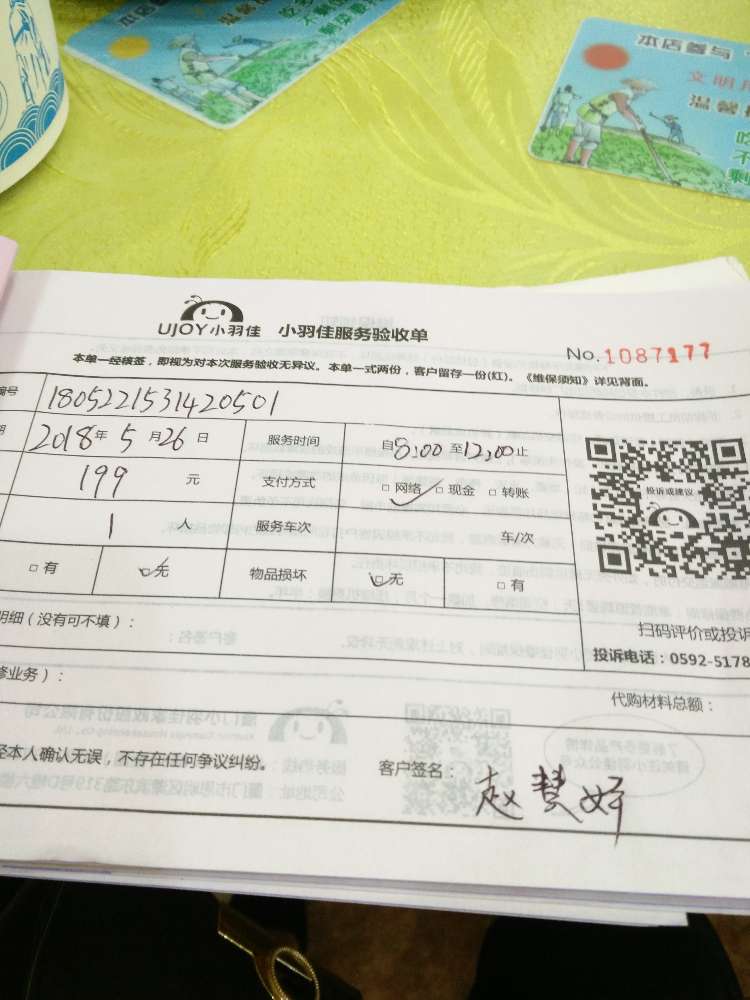 温馨
吃多
不剩
剩菜
本店参与
文明用
温馨
吃
不
剩
UJOY小羽佳 小羽佳服务验收单
No.1087177
本单一经核签，即视为对本次服务验收无异议。本单一式两份，客户留存一份(红)。《维保须知》详见背面。
编号 1805221531420501
期 2018年5月26日 服务时间 自8:00至12:00止
199 元 支付方式 □网络 ✓ □现金 □转账
1 人 服务车次 车/次
□有 ☑无 物品损坏 ☑无 □有
投诉或建议
扫码评价或投诉
投诉电话：0592-5178
明细（没有可不填）：
修业务）：
代购材料总额：
经本人确认无误，不存在任何争议纠纷。
客户签名：赵慧婷